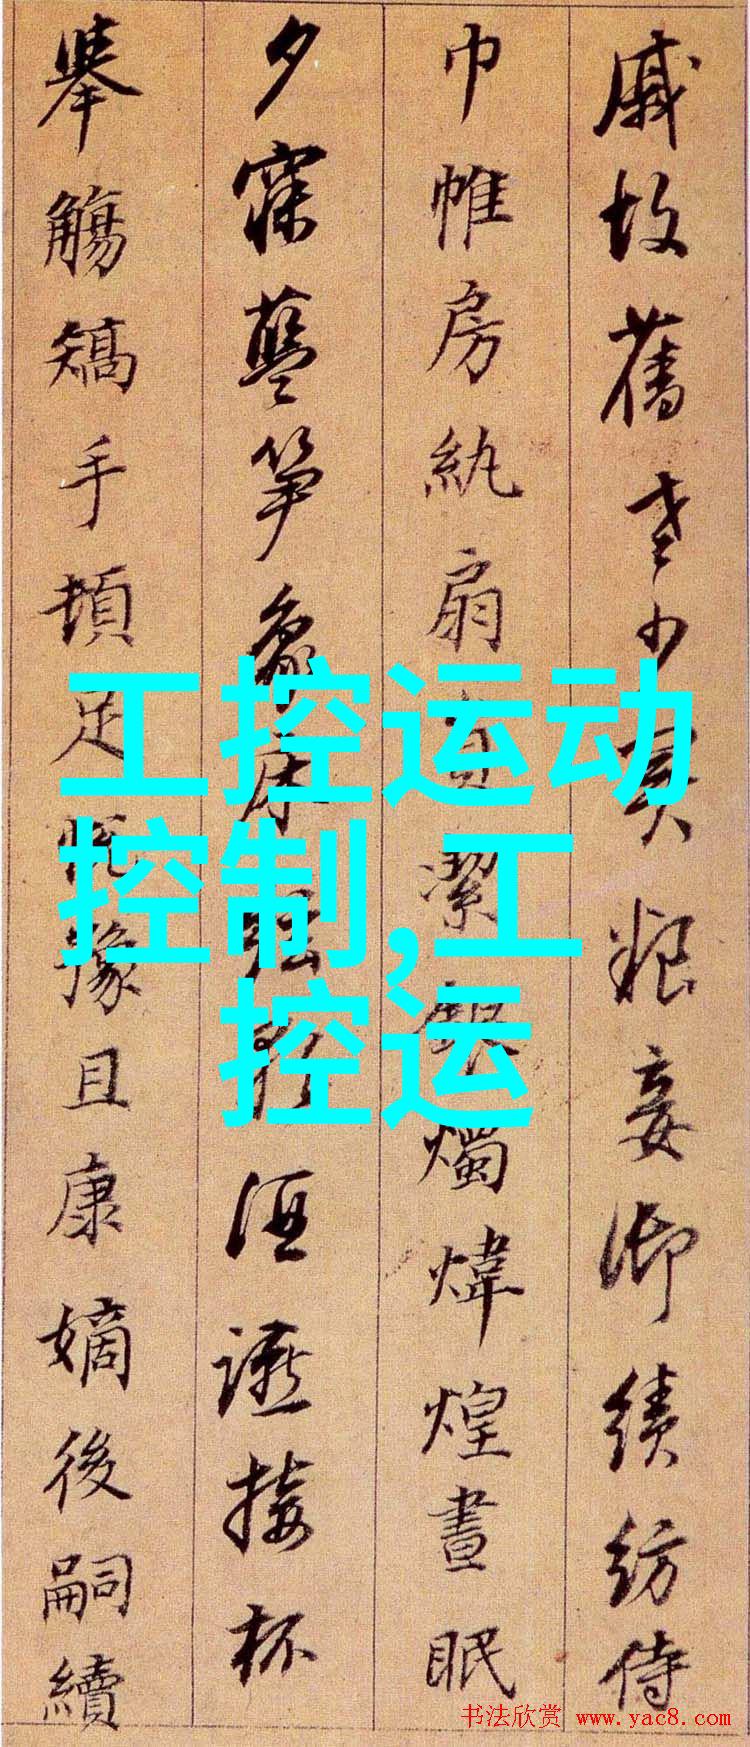 戚故舊老少異粮妾御績紡侍
巾帷房紈扇員潔銀燭煒煌晝眠
夕寐藍笋象床弦歌酒讌接杯
舉觴矯手頓足悅豫且康嫡後嗣續
工控运动
控制,工
控运
书法欣赏 www.yac8.com